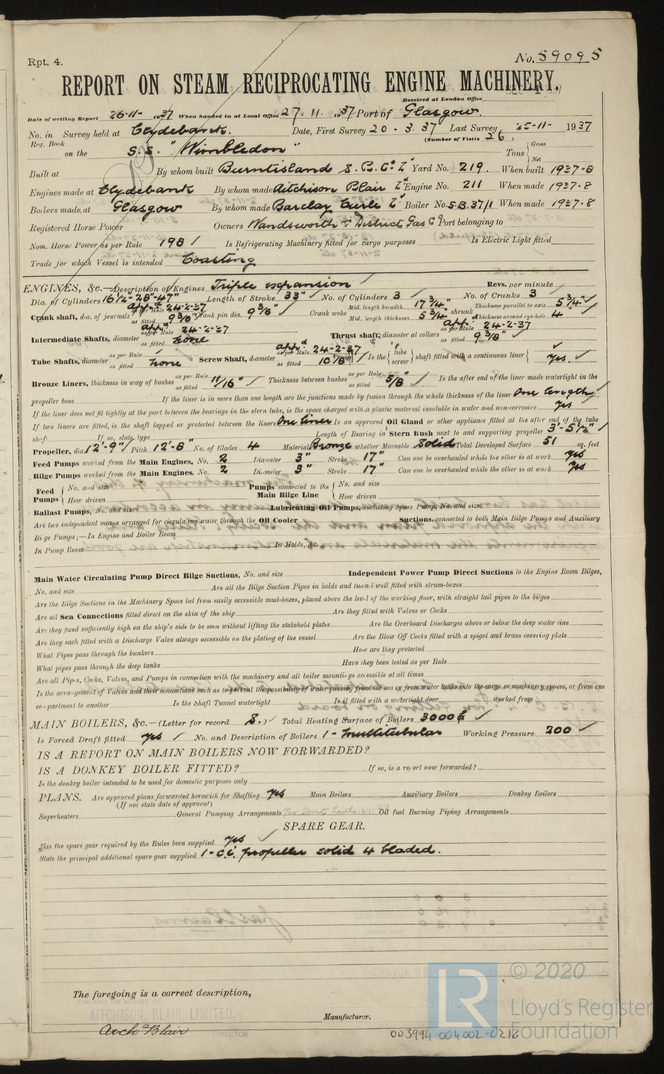 Rpt. 4.
No. 59095
REPORT ON STEAM RECIPROCATING ENGINE MACHINERY.
Received at London Office
Date of writing Report 26-11-1937 When handed in at Local Office 27.11.1937 Port of Glasgow.
No. in Survey held at Clydebank. Date, First Survey 20-3.37 Last Survey 25-11-1937
Reg. Book (Number of Visits 26)
on the S.S. "Wimbledon" Tons Gross Net
Built at By whom built Burntisland S.B. Co Ld Yard No. 219. When built 1937-8
Engines made at Clydebank By whom made Aitchison Blair Ld Engine No. 211 When made 1937-8
Boilers made at Glasgow By whom made Barclay Curle Ld Boiler No. SB.37/1 When made 1937-8
Registered Horse Power Owners Wandsworth & District Gas Co Port belonging to
Nom. Horse Power as per Rule 198 Is Refrigerating Machinery fitted for cargo purposes Is Electric Light fitted
Trade for which Vessel is intended Coasting
ENGINES, &c.—Description of Engines Triple expansion Revs. per minute
Dia. of Cylinders 16½-28-47" Length of Stroke 33" No. of Cylinders 3 No. of Cranks 3
Crank shaft, dia. of journals as per Rule Appd 24-2-37 as fitted 9 3/8" Crank pin dia. 9 3/8" Crank webs Mid. length breadth 17 3/4" Mid. length thickness 5 3/4" shrunk Thickness parallel to axis 5 3/4" Thickness around eye-hole 4"
Intermediate Shafts, diameter as per Rule Appd 24-2-37 as fitted None Thrust shaft, diameter at collars as per Rule Appd 24-2-37 as fitted 9 3/8"
Tube Shafts, diameter as per Rule as fitted None Screw Shaft, diameter as per Rule Appd 24-2-37 as fitted 10 1/8" Is the tube screw shaft fitted with a continuous liner yes.
Bronze Liners, thickness in way of bushes as per Rule as fitted 11/16" Thickness between bushes as per Rule as fitted 5/8" Is the after end of the liner made watertight in the
propeller boss If the liner is in more than one length are the junctions made by fusion through the whole thickness of the liner One length
If the liner does not fit tightly at the part between the bearings in the stern tube, is the space charged with a plastic material insoluble in water and non-corrosive yes
If two liners are fitted, is the shaft lapped or protected between the liners One liner Is an approved Oil Gland or other appliance fitted at the after end of the tube
shaft If so, state type Length of Bearing in Stern Bush next to and supporting propeller 3'-5½"
Propeller, dia. 12'-9" Pitch 12'-8" No. of Blades 4 Material Bronze whether Moveable Solid Total Developed Surface 51 sq. feet
Feed Pumps worked from the Main Engines, No. 2 Diameter 3" Stroke 17" Can one be overhauled while the other is at work yes
Bilge Pumps worked from the Main Engines, No. 2 Diameter 3" Stroke 17" Can one be overhauled while the other is at work yes
Feed Pumps No. and size How driven Pumps connected to the Main Bilge Line No. and size How driven
Ballast Pumps, No. and size Lubricating Oil Pumps, including Spare Pump, No. and size
Are two independent means arranged for circulating water through the Oil Cooler Suctions, connected to both Main Bilge Pumps and Auxiliary
Bilge Pumps;—In Engine and Boiler Room
In Pump Room In Holds, &c.
Main Water Circulating Pump Direct Bilge Suctions, No. and size Independent Power Pump Direct Suctions to the Engine Room Bilges,
No. and size Are all the Bilge Suction Pipes in holds and tunnel well fitted with strum-boxes
Are the Bilge Suctions in the Machinery Space led from easily accessible mud-boxes, placed above the level of the working floor, with straight tail pipes to the bilges
Are all Sea Connections fitted direct on the skin of the ship Are they fitted with Valves or Cocks
Are they fixed sufficiently high on the ship's side to be seen without lifting the stokehold plates Are the Overboard Discharges above or below the deep water line
Are they each fitted with a Discharge Valve always accessible on the plating of the vessel Are the Blow Off Cocks fitted with a spigot and brass covering plate
What Pipes pass through the bunkers How are they protected
What pipes pass through the deep tanks Have they been tested as per Rule
Are all Pipes, Cocks, Valves, and Pumps in connection with the machinery and all boiler mountings accessible at all times
Is the arrangement of Valves and their connections such as to prevent the possibility of water passing from the sea or from water tanks into the cargo or machinery spaces, or from one
compartment to another Is the Shaft Tunnel watertight Is it fitted with a watertight door worked from
MAIN BOILERS, &c.—(Letter for record S.) Total Heating Surface of Boilers 3000
Is Forced Draft fitted yes No. and Description of Boilers 1 - Multitubular Working Pressure 200
IS A REPORT ON MAIN BOILERS NOW FORWARDED?
IS A DONKEY BOILER FITTED? If so, is a report now forwarded?
Is the donkey boiler intended to be used for domestic purposes only
PLANS. Are approved plans forwarded herewith for Shafting yes Main Boilers Auxiliary Boilers Donkey Boilers
(If not state date of approval)
Superheaters General Pumping Arrangements Oil fuel Burning Piping Arrangements
SPARE GEAR.
Has the spare gear required by the Rules been supplied yes
State the principal additional spare gear supplied 1-c.i. propeller solid 4 bladed.
The foregoing is a correct description,
AITCHISON, BLAIR, LIMITED.
Arch Blair DIRECTOR Manufacturer.
003994-004002-0216
LR © 2020
Lloyd's Register
Foundation